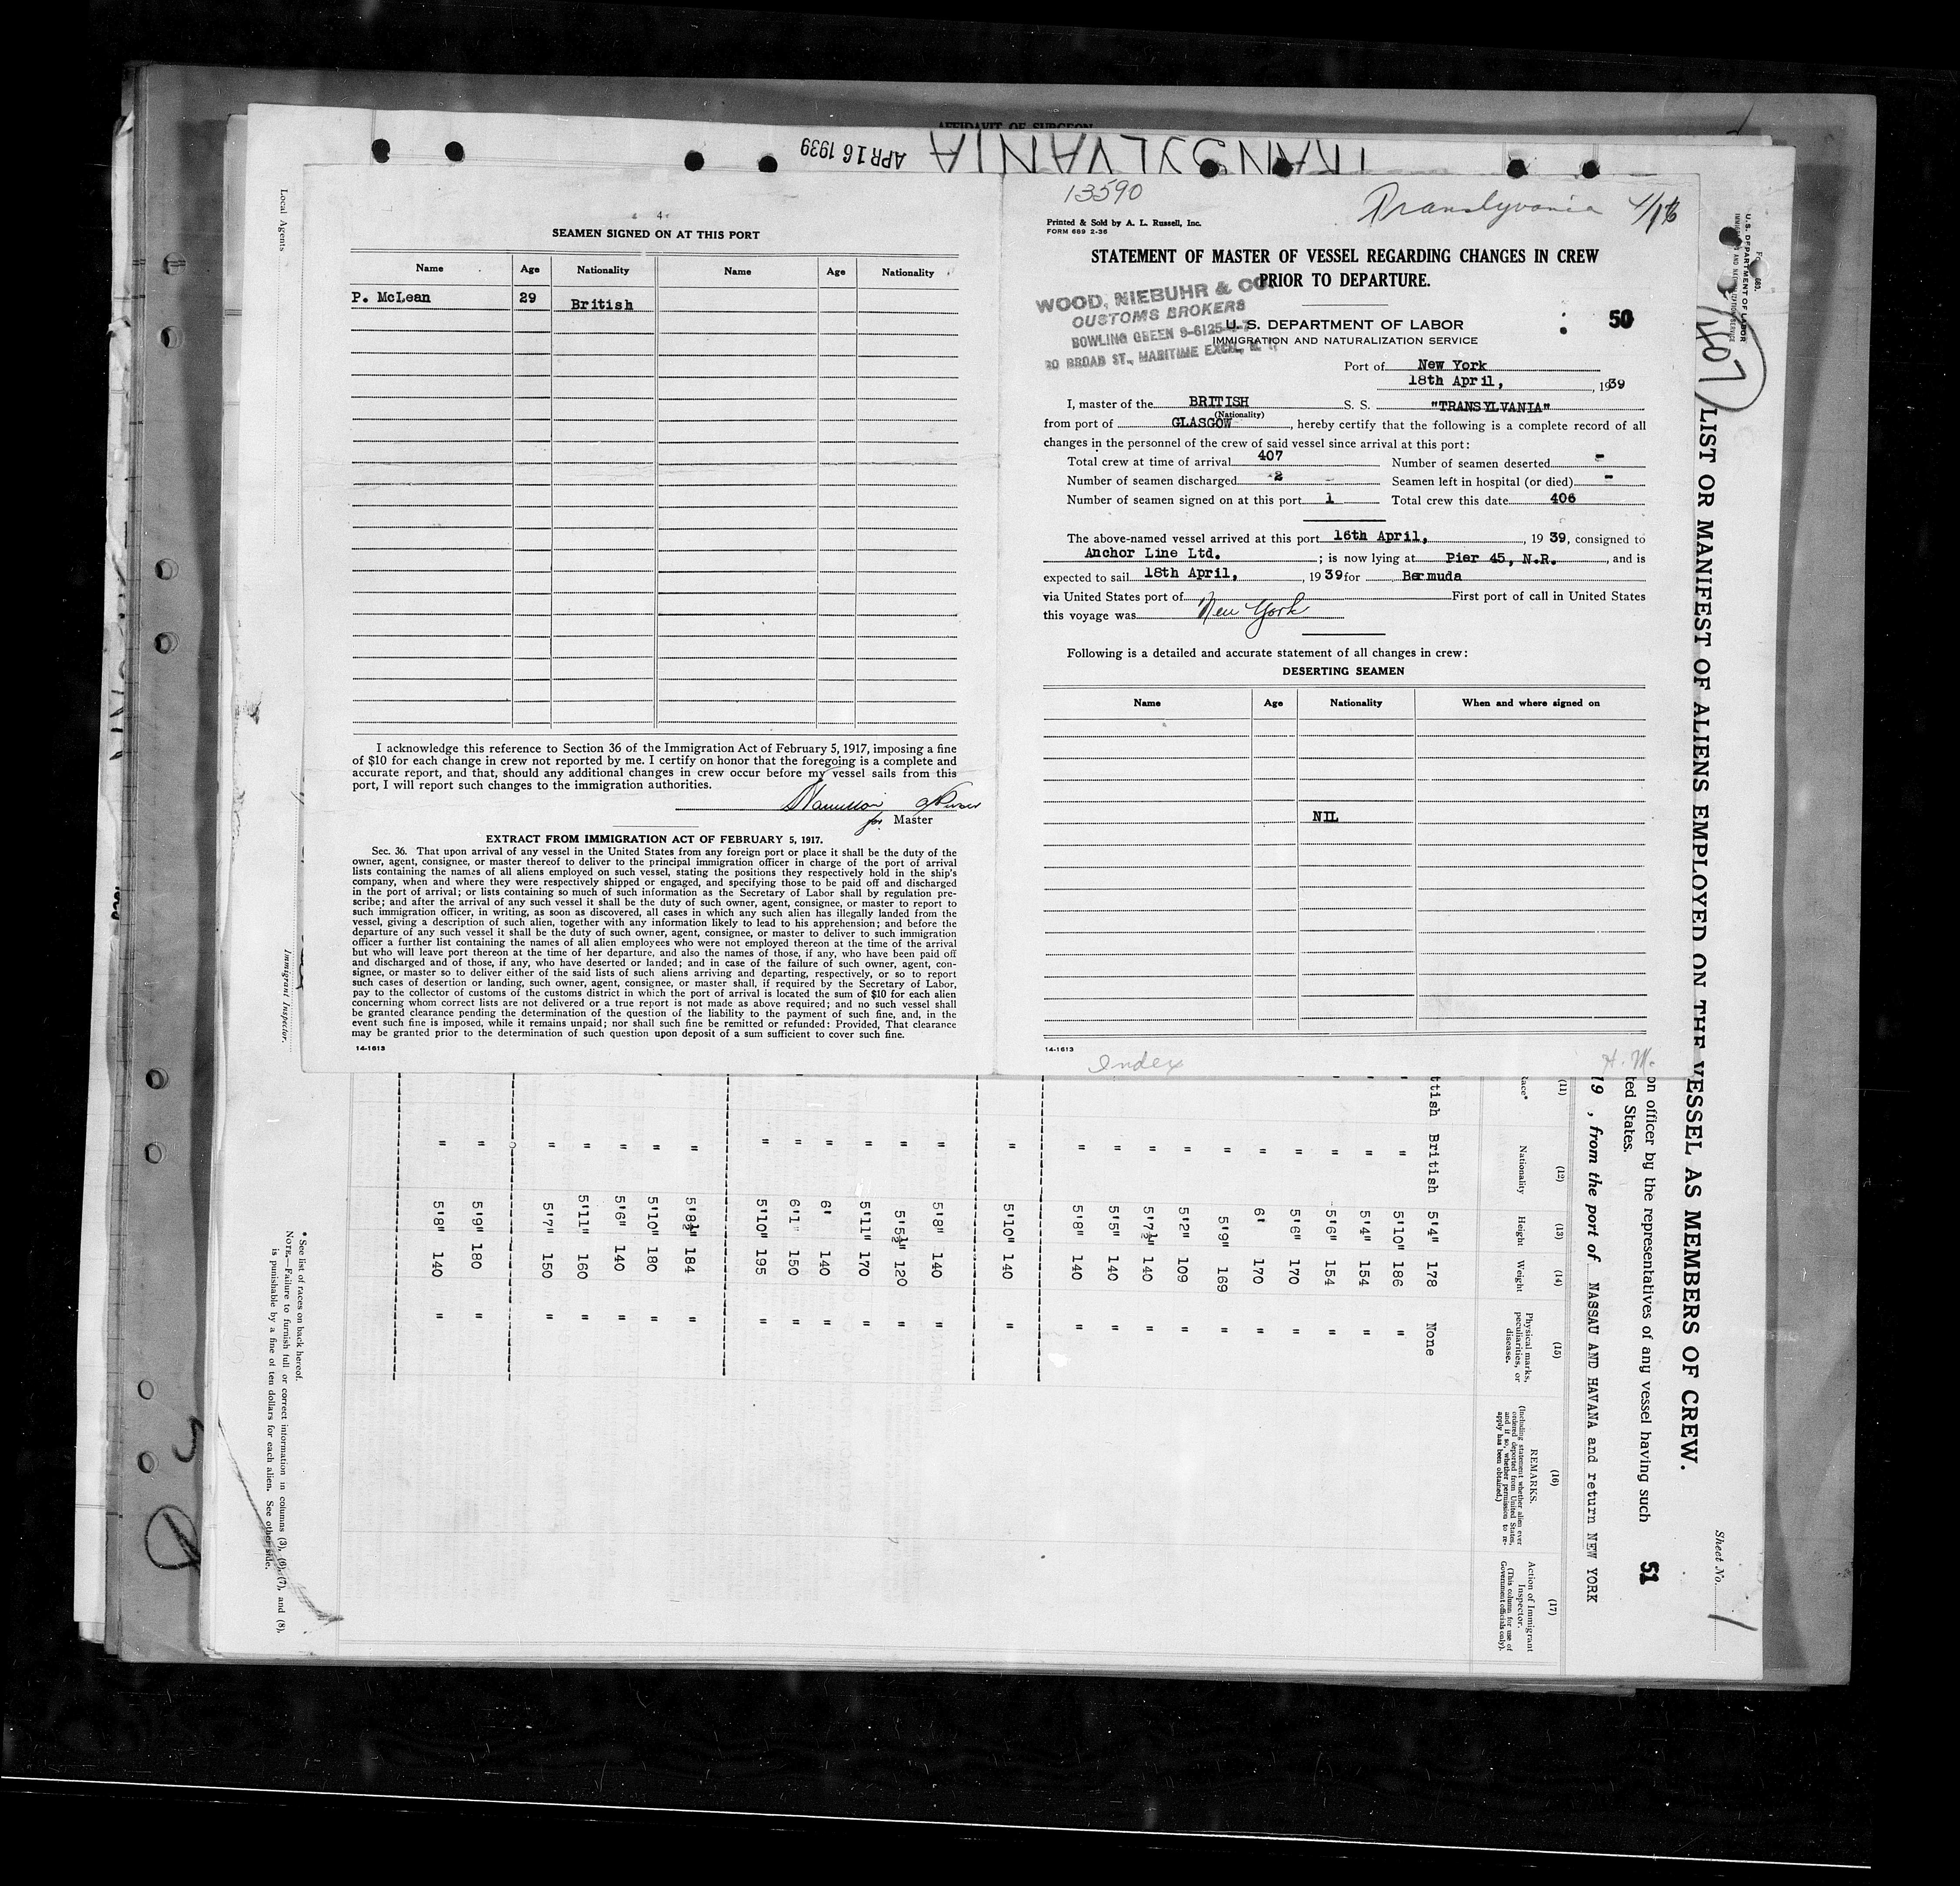 AFFIDAVIT OF SURGEON
TRANSYLVANIA
APR 16 1939
4
SEAMEN SIGNED ON AT THIS PORT
Name Age Nationality Name Age Nationality
P. McLean 29 British
I acknowledge this reference to Section 36 of the Immigration Act of February 5, 1917, imposing a fine
of $10 for each change in crew not reported by me. I certify on honor that the foregoing is a complete and
accurate report, and that, should any additional changes in crew occur before my vessel sails from this
port, I will report such changes to the immigration authorities.
for Master
EXTRACT FROM IMMIGRATION ACT OF FEBRUARY 5, 1917.
Sec. 36. That upon arrival of any vessel in the United States from any foreign port or place it shall be the duty of the
owner, agent, consignee, or master thereof to deliver to the principal immigration officer in charge of the port of arrival
lists containing the names of all aliens employed on such vessel, stating the positions they respectively hold in the ship's
company, when and where they were respectively shipped or engaged, and specifying those to be paid off and discharged
in the port of arrival; or lists containing so much of such information as the Secretary of Labor shall by regulation pre-
scribe; and after the arrival of any such vessel it shall be the duty of such owner, agent, consignee, or master to report to
such immigration officer, in writing, as soon as discovered, all cases in which any such alien has illegally landed from the
vessel, giving a description of such alien, together with any information likely to lead to his apprehension; and before the
departure of any such vessel it shall be the duty of such owner, agent, consignee, or master to deliver to such immigration
officer a further list containing the names of all alien employees who were not employed thereon at the time of the arrival
but who will leave port thereon at the time of her departure, and also the names of those, if any, who have been paid off
and discharged and of those, if any, who have deserted or landed; and in case of the failure of such owner, agent, con-
signee, or master so to deliver either of the said lists of such aliens arriving and departing, respectively, or so to report
such cases of desertion or landing, such owner, agent, consignee, or master shall, if required by the Secretary of Labor,
pay to the collector of customs of the customs district in which the port of arrival is located the sum of $10 for each alien
concerning whom correct lists are not delivered or a true report is not made as above required; and no such vessel shall
be granted clearance pending the determination of the question of the liability to the payment of such fine, and, in the
event such fine is imposed, while it remains unpaid; nor shall such fine be remitted or refunded: Provided, That clearance
may be granted prior to the determination of such question upon deposit of a sum sufficient to cover such fine.
14-1613
13590
Transylvania 4/16
Printed & Sold by A. L. Russell, Inc.
FORM 689 2-36
STATEMENT OF MASTER OF VESSEL REGARDING CHANGES IN CREW
PRIOR TO DEPARTURE.
WOOD, NIEBUHR & CO.
CUSTOMS BROKERS
BOWLING GREEN 9-6125-
BROAD ST., MARITIME EXCH.,
U. S. DEPARTMENT OF LABOR
IMMIGRATION AND NATURALIZATION SERVICE
50
Port of New York
18th April, , 1939
I, master of the BRITISH S. S. "TRANSYLVANIA"
(Nationality)
from port of GLASGOW , hereby certify that the following is a complete record of all
changes in the personnel of the crew of said vessel since arrival at this port:
Total crew at time of arrival 407 Number of seamen deserted -
Number of seamen discharged 2 Seamen left in hospital (or died) -
Number of seamen signed on at this port 1 Total crew this date 406
The above-named vessel arrived at this port 16th April, , 19 39, consigned to
Anchor Line Ltd. ; is now lying at Pier 45, N.R. , and is
expected to sail 18th April, , 19 39 for Bermuda
via United States port of First port of call in United States
this voyage was New York
Following is a detailed and accurate statement of all changes in crew:
DESERTING SEAMEN
Name Age Nationality When and where signed on
NIL
14-1613
Index
H. M.
Local Agents
Immigrant Inspector.
U. S. DEPARTMENT OF LABOR
407
LIST OR MANIFEST OF ALIENS EMPLOYED ON THE VESSEL AS MEMBERS OF CREW.
Sheet No. 1
on officer by the representatives of any vessel having such
ted States.
51
19 , from the port of NASSAU AND HAVANA and return NEW YORK
(11) (12) (13) (14) (15) (16) (17)
Nationality Height Weight Physical marks, peculiarities, or disease.
REMARKS. (Including statement whether alien ever ordered deported from United States, and if so, whether permission to re-apply has been obtained.)
Action of Immigrant Inspector. (This column for use of Government officials only).
ttish British 5'4" 178 None
" 5'10" 186 "
" 5'4" 154 "
" 5'6" 154 "
" 5'6" 170 "
" 6' 170 "
" 5'9" 169 "
" 5'2" 109 "
" 5'7½" 140 "
" 5'5" 140 "
" 5'8" 140 "
" 5'10" 140 "
" 5'8" 140 "
" 5'5½" 120 "
" 5'11" 170 "
" 6' 140 "
" 6'1" 150 "
" 5'10" 195 "
" 5'8½" 184 "
" 5'10" 180 "
" 5'6" 140 "
" 5'11" 160 "
" 5'7" 150 "
" 5'9" 180
" 5'8" 140 "
* See list of races on back hereof.
NOTE.—Failure to furnish full or correct information in columns (3), (6), (7), and (8),
is punishable by a fine of ten dollars for each alien. See other side.